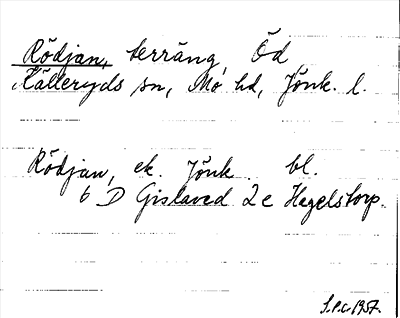 Rödjan, terräng, Öd
Källeryds sn, Mo hd, Jönk. l.
Rödjan, ek. Jönk. bl.
6 D Gislaved 2 e Hagelstorp.
S.P.c. 1957.